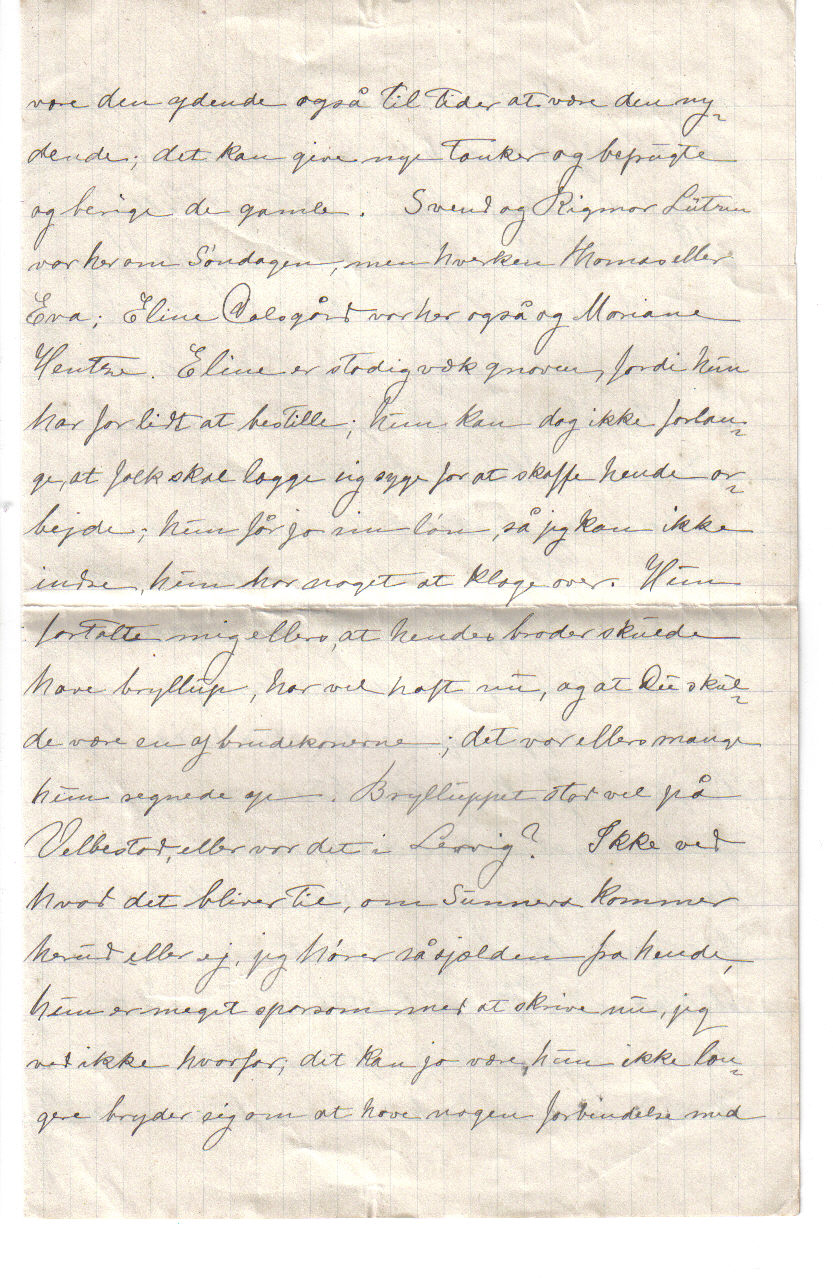 være den ydende også til tider at være den ny-
dende; det kan give nye tanker og befrugte
og berige de gamle. Svend og Rigmor Lützen
var her om Søndagen, men hverken Thomas eller
Eva; Eline Dalsgård var her også og Mariane
Hentze. Eline er stadigvæk gnaven, fordi hun
har for lidt at bestille; hun kan dog ikke forlan-
ge, at folk skal lægge sig syge for at skaffe hende ar-
bejde; hun får jo sin løn, så jeg kan ikke
indse, hun har noget at klage over. Hun
fortalte mig ellers, at hendes broder skulde
have bryllup, har vel haft nu, og at Du skul-
de være en af brudekonerne; det var ellers mange
hun regnede op. Brylluppet stod vel på
Velbestad, eller var det i Lervig? Ikke ved
hvad det bliver til, om Sunneva kommer
herud eller ej, jeg hører så sjælden fra hende,
hun er meget sparsom med at skrive nu, jeg
ved ikke hvorfor, det kan jo være, hun ikke læn-
gere bryder sig om at have nogen forbindelse med